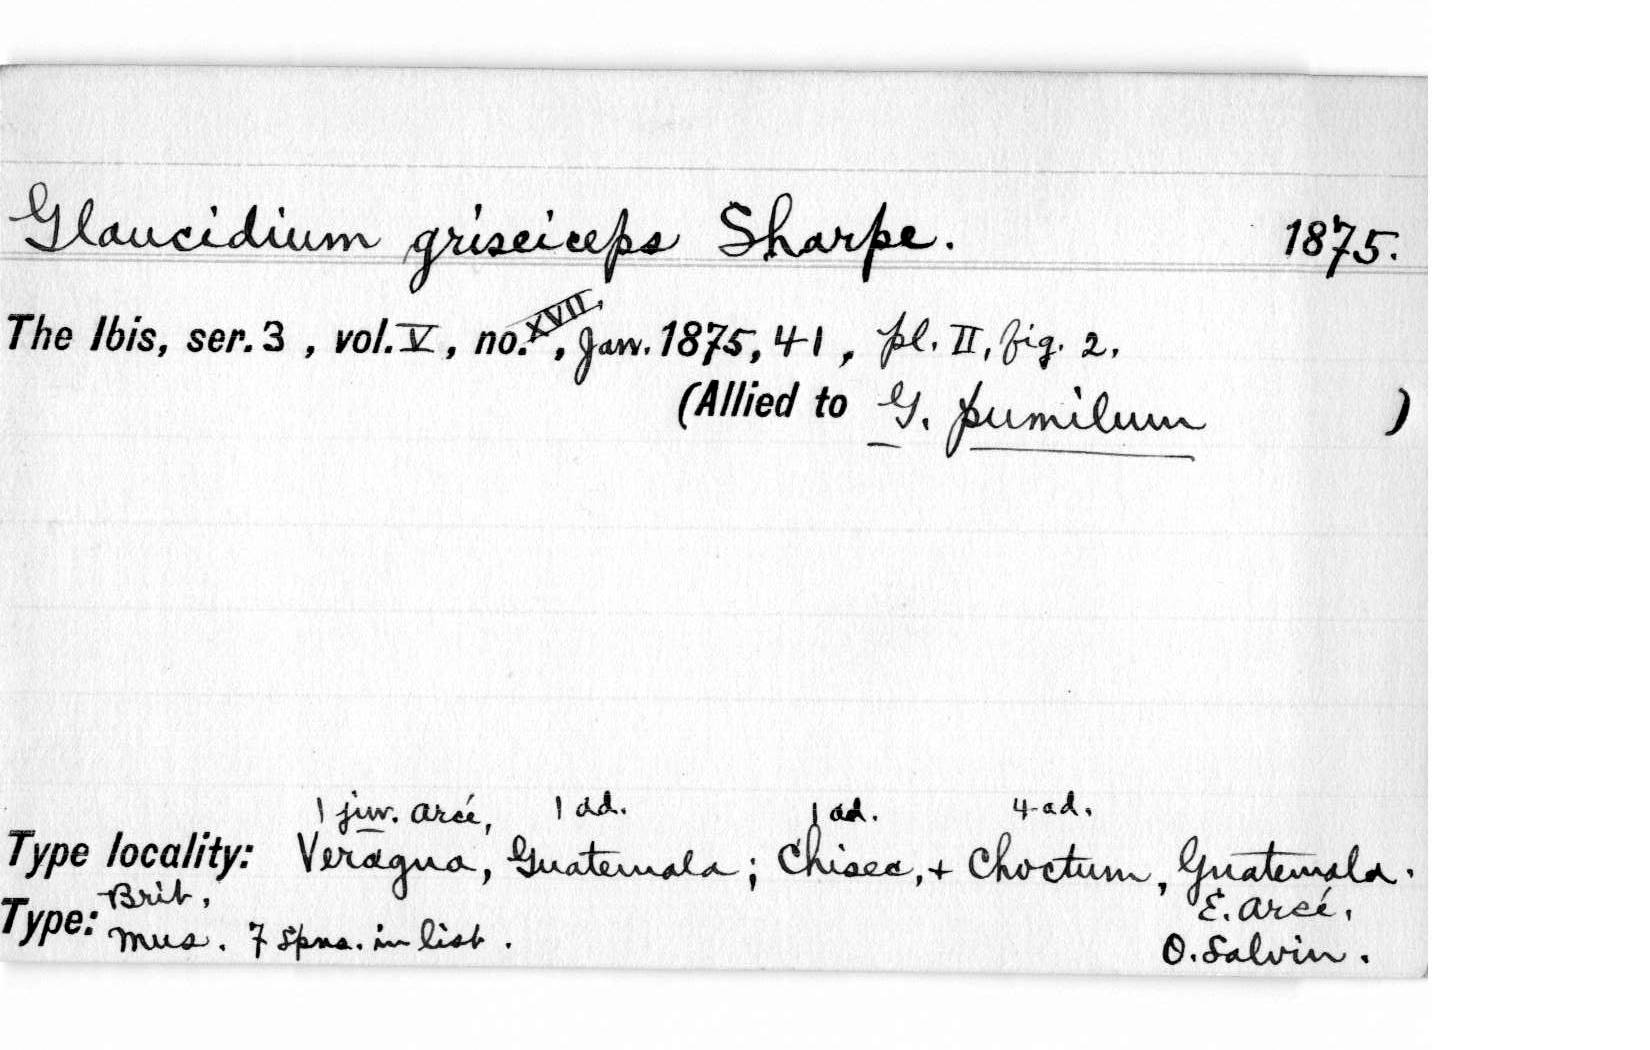 Glaucidium griseiceps Sharpe. 1875.
The Ibis, ser. 3 , vol. V , no. XVII, , Jan. 1875, 41 , pl. II, fig. 2.
(Allied to G. pumilum )
1 juv. Arcé, 1 ad. 1 ad. 4 ad.
Type locality: Veragua, Guatemala; Chisec, + Choctum, Guatemala.
Brit. E. Arcé.
Type: Mus. 7 spns. in list. O. Salvin.